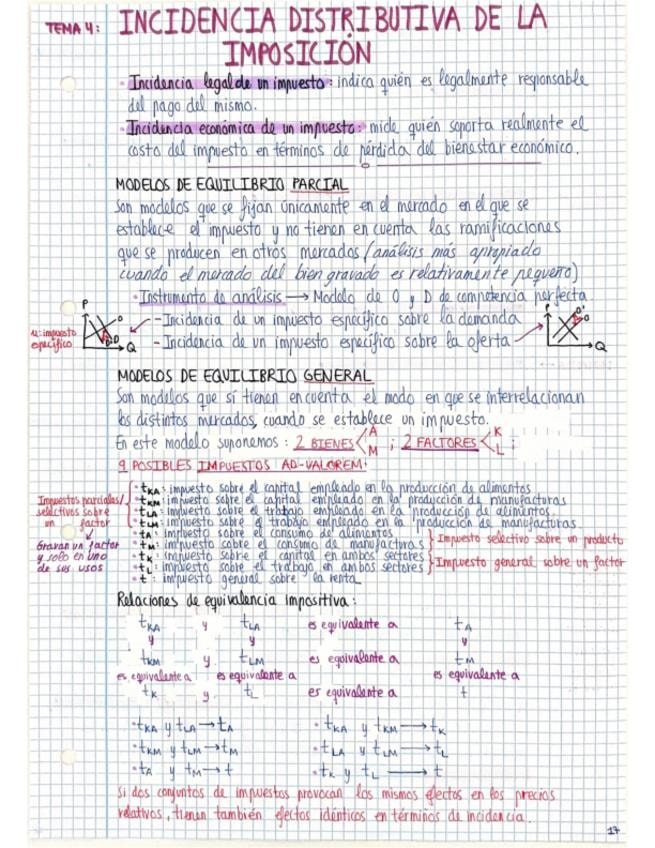 TEMA 4: INCIDENCIA DISTRIBUTIVA DE LA
IMPOSICIÓN
· Incidencia legal de un impuesto: indica quién es legalmente responsable
del pago del mismo.
· Incidencia económica de un impuesto: mide quién soporta realmente el
costo del impuesto en términos de pérdida del bienestar económico.
MODELOS DE EQUILIBRIO PARCIAL
Son modelos que se fijan únicamente en el mercado en el que se
establece el impuesto y no tienen en cuenta las ramificaciones
que se producen en otros mercados (análisis más apropiado
cuando el mercado del bien gravado es relativamente pequeño)
· Instrumento de análisis → Modelo de O y D de competencia perfecta
- Incidencia de un impuesto específico sobre la demanda
- Incidencia de un impuesto específico sobre la oferta
P
O
Q
u: impuesto
específico
P
O'
O
Q
MODELOS DE EQUILIBRIO GENERAL
Son modelos que sí tienen en cuenta el modo en que se interrelacionan
los distintos mercados, cuando se establece un impuesto.
En este modelo suponemos: 2 BIENES < A M ; 2 FACTORES < K L ;
9 POSIBLES IMPUESTOS AD-VALOREM:
· tKA: impuesto sobre el capital empleado en la producción de alimentos
· tKM: impuesto sobre el capital empleado en la producción de manufacturas
· tLA: impuesto sobre el trabajo empleado en la producción de alimentos.
· tLM: impuesto sobre el trabajo empleado en la producción de manufacturas.
· tA: impuesto sobre el consumo de alimentos
· tM: impuesto sobre el consumo de manufacturas
· tK: impuesto sobre el capital en ambos sectores
· tL: impuesto sobre el trabajo en ambos sectores
· t: impuesto general sobre la renta
Impuestos parciales/
selectivos sobre
un factor
Gravan un factor
y solo en uno
de sus usos
Impuesto selectivo sobre un producto
Impuesto general sobre un factor
Relaciones de equivalencia impositiva:
tKA y tLA es equivalente a tA
y y y
tKM y tLM es equivalente a tM
es equivalente a es equivalente a es equivalente a
tK y tL es equivalente a t
· tKA y tLA → tA · tKA y tKM → tK
· tKM y tLM → tM · tLA y tLM → tL
· tA y tM → t · tK y tL → t
Si dos conjuntos de impuestos provocan los mismos efectos en los precios
relativos, tienen también efectos idénticos en términos de incidencia.
17